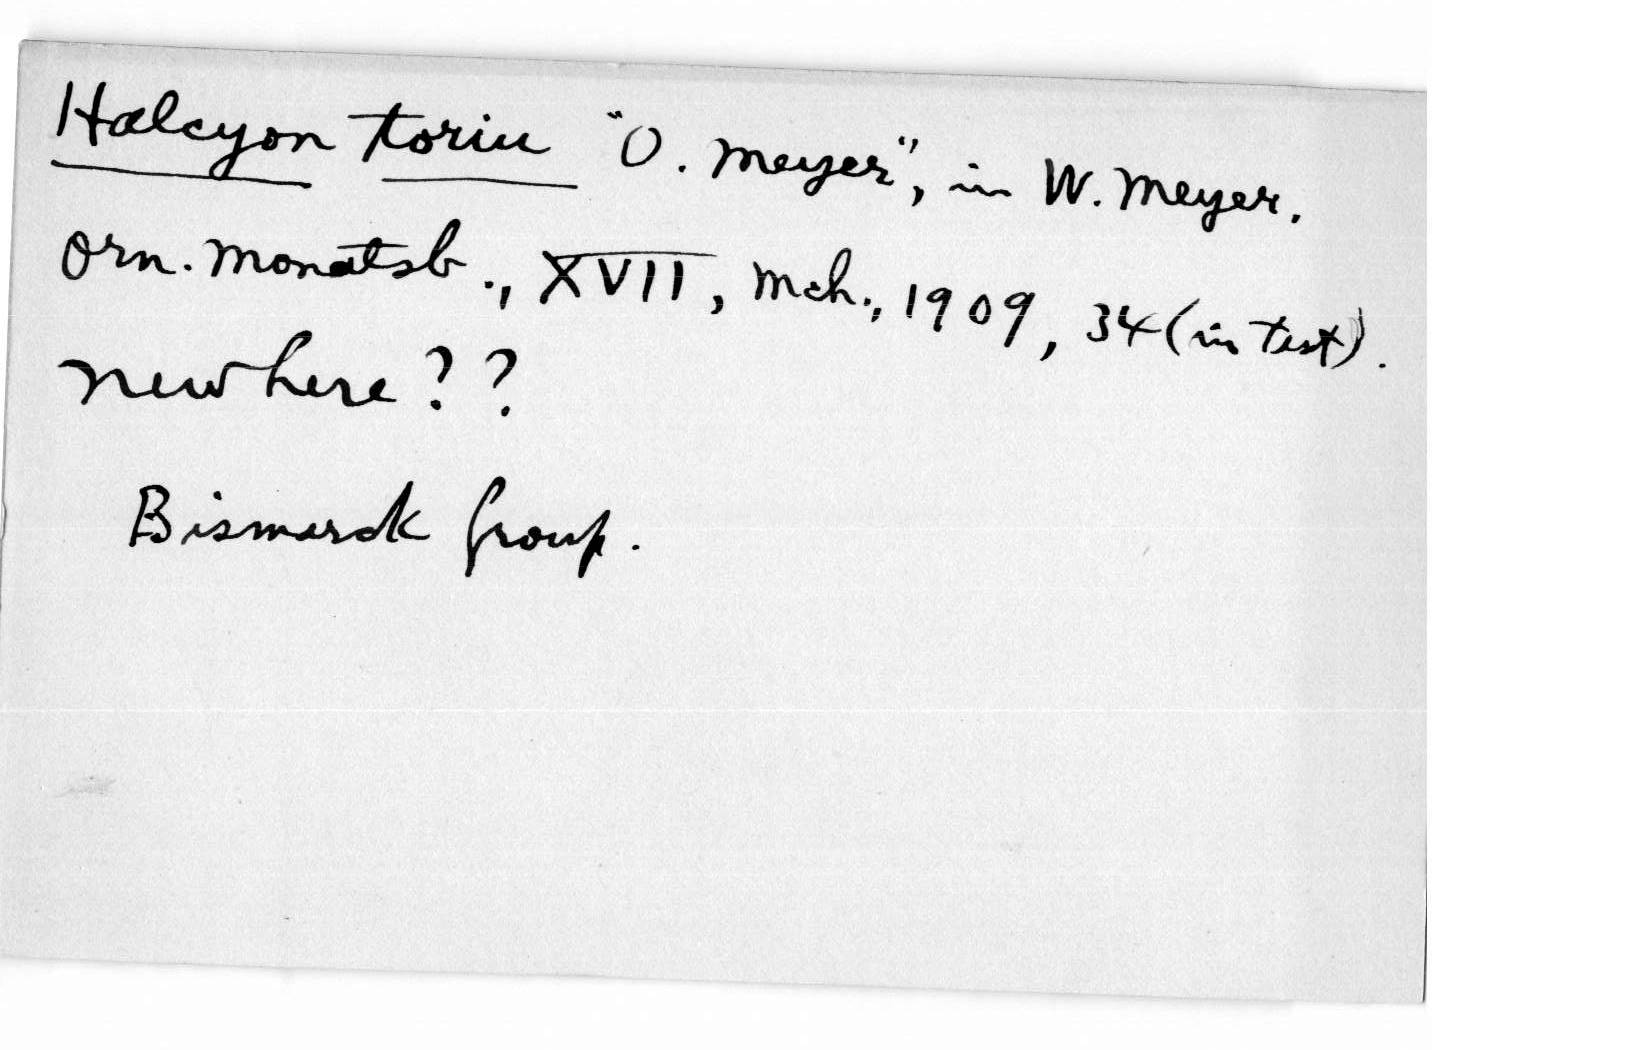 Halcyon toriu "O. Meyer", in W. Meyer.
Orn. Monatsb., XVII, Mch., 1909, 34 (in text).
New here??
Bismarck Group.